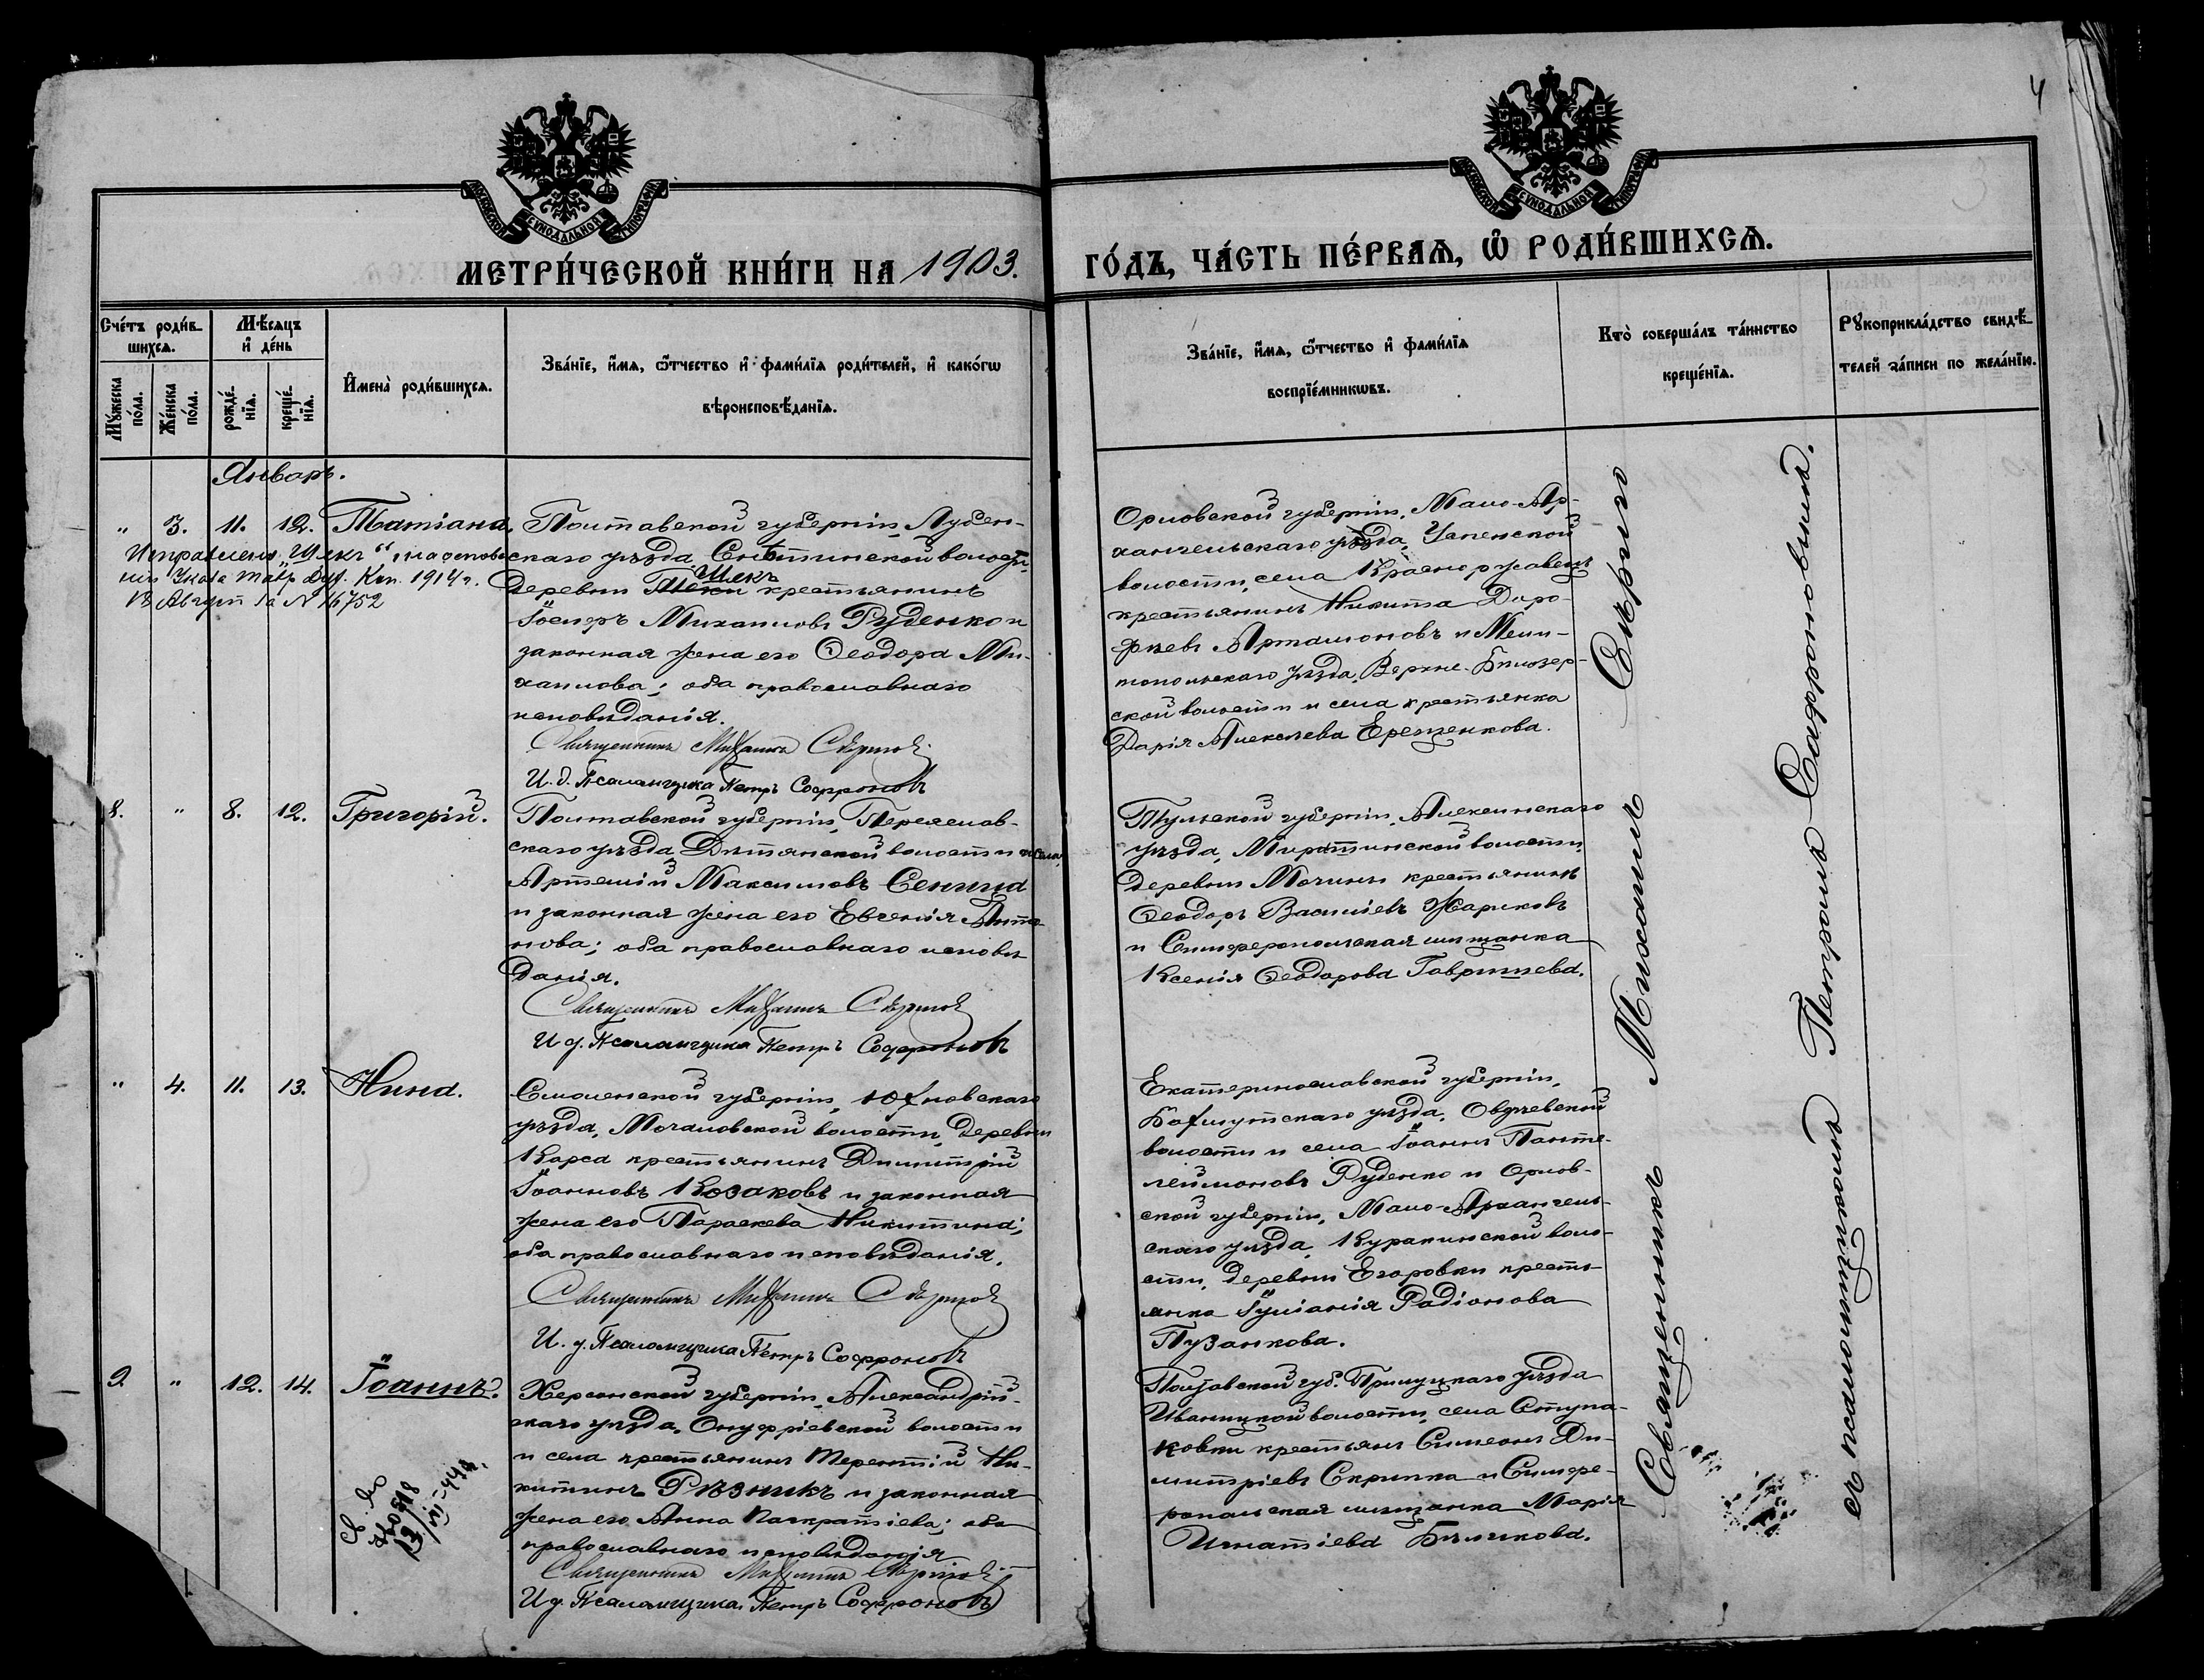 4
МОСКОВСКОЙ СѴНОДАЛЬНОЙ ТИПОГРАФІИ
МОСКОВСКОЙ СѴНОДАЛЬНОЙ ТИПОГРАФІИ
МЕТРИ́ЧЕСКОЙ КНИ́ГИ НА 1903.
ГО́ДЪ, ЧА́СТЬ ПЕ́РВАѦ, Ѡ҆ РОДИ́ВШИХСѦ.
Сче́тъ роди́в-
шихсѧ.
Мꙋ́жеска
по́ла.
Же́нска
по́ла.
Мѣ́сѧцъ
и҆ де́нь
рожде́-
нїѧ.
креще́-
нїѧ.
И҆мена̀ роди́вшихсѧ.
Зва́нїе, и҆́мѧ, ѻ҆́тчество и҆ фами́лїѧ роди́телей, и҆ како́гѡ
вѣроисповѣ́данїѧ.
Зва́нїе, и҆́мѧ, ѻ҆́тчество и҆ фами́лїѧ
воспрїе́мникѡвъ.
Кто̀ соверша́лъ та́инство
креще́нїѧ.
Рꙋкоприкла́дство свидѣ́-
телей за́писи по жела́нїю.
Январь.
" 3. 11. 12. Татіана.
Исправлено „Шекъ" на основа
ніи Указа Тавр. Дух. Кон. 1914 г.
13 Август за N 16752
Полтавской губерніи, Лубен-
скаго уѣзда, Снѣтинской волости,
Шекъ
деревни крестьянинъ
Іосифъ Михаиловъ Руденко и
законная жена его Ѳеодора Ми-
хаилова; оба православнаго
исповѣданія.
Священникъ Михаилъ
И. д. Псаломщика Петръ Софроновъ
Орловской губерніи, Мало-Ар-
хангельскаго уѣзда, Успенской
волости, села Красноржавецъ
крестьянинъ Никита Доро-
феевъ Артамоновъ и Мели-
топольскаго уѣзда, Верхне-Бѣлозер-
ской волости и села крестьянка
Дарія Алексѣева Ерещенкова.
8. " 8. 12. Григорій.
Полтавской губерніи, Переяслав-
скаго уѣзда, волости и села
Артемій Максимовъ
и законная жена его Евгенія Анто-
нова; оба православнаго исповѣ-
данія.
Священникъ Михаилъ
И. д. Псаломщика Петръ Софроновъ
Тульской губерніи, Алексинскаго
уѣзда, волости,
деревни крестьянинъ
Ѳеодоръ Васильевъ Жариковъ
и Симферопольская мѣщанка
Ксенія Ѳеодорова
" 4. 11. 13. Нина.
Смоленской губерніи, Юхновскаго
уѣзда, Мочаловской волости, деревни
Карса крестьянинъ Димитрій
Іоанновъ Козаковъ и законная
жена его Параскева Никитина;
оба православнаго исповѣданія.
Священникъ Михаилъ
И. д. Псаломщика Петръ Софроновъ
Екатеринославской губерніи,
Бахмутскаго уѣзда,
волости и села Іоаннъ Панте-
леймоновъ Руденко и Орлов-
ской губерніи, Мало-Архангель-
скаго уѣзда, Куракинской воло-
сти, деревни Егоровки кресть-
янка Іуліанія Радіонова
Пузанкова.
9 " 12. 14. Іоаннъ.
Херсонской губерніи, Александрій-
скаго уѣзда, Онуфріевской волости
и села крестьянинъ Терентій Ни-
китинъ Рѣзникъ и законная
жена его Анна Панкратіева; оба
православнаго исповѣданія
Священникъ Михаилъ
И д. Псаломщика Петръ Софроновъ
Полтавской губ. Прилуцкаго уѣзда
Иваницкой волости, села Ступа-
ковки крестьян. Симеонъ Ди-
митріевъ Скрипка и Симфе-
ропольская мѣщанка Марія
Игнатіева Бѣличкова.
Священникъ Михаилъ
съ псаломщикомъ Петромъ Софроновымъ.